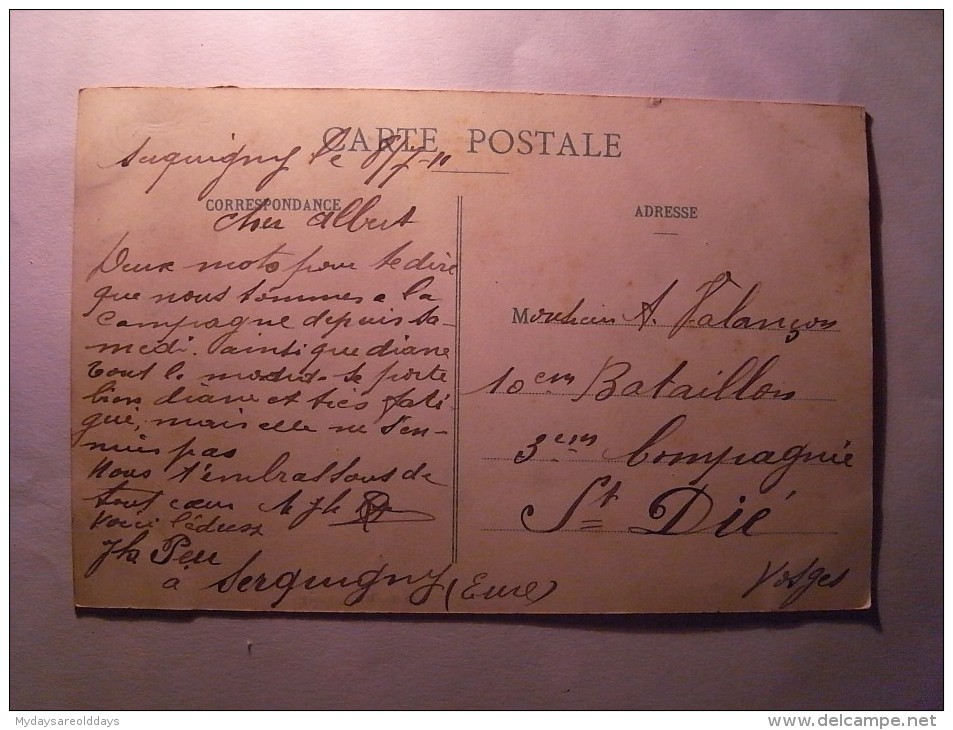 CARTE POSTALE
Serquigny le 8/7-11
CORRESPONDANCE
cher albert
Deux mots pour te dire
que nous sommes a la
Campagne depuis sa-
medi. ainsi que diane
tout le monde se porte
bien diane et très fati-
gué, mais elle ne s'en-
nuis pas
Nous t'embrassons de
tout cœur
Voici l'adresse
Peu
à Serquigny (Eure)
ADRESSE
Monsieur A. Valançon
10em Bataillon
3em Compagnie
St Dié
Vosges
Mydaysareolddays
www.delcampe.net